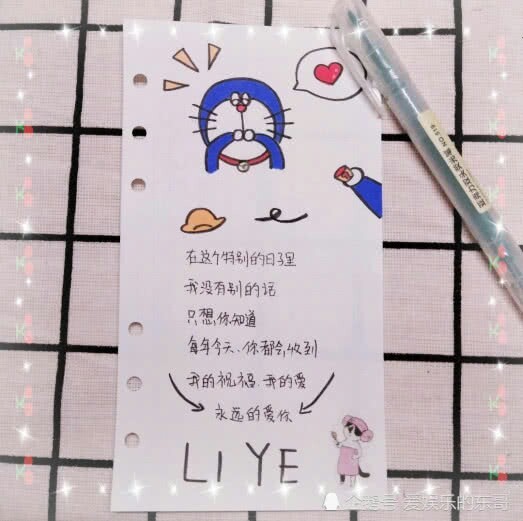 在这个特别的日子里
我没有别的话
只想你知道
每年今天、你都会收到
我的祝福.我的爱
永远的爱你
LIYE
企鹅号 爱娱乐的东哥